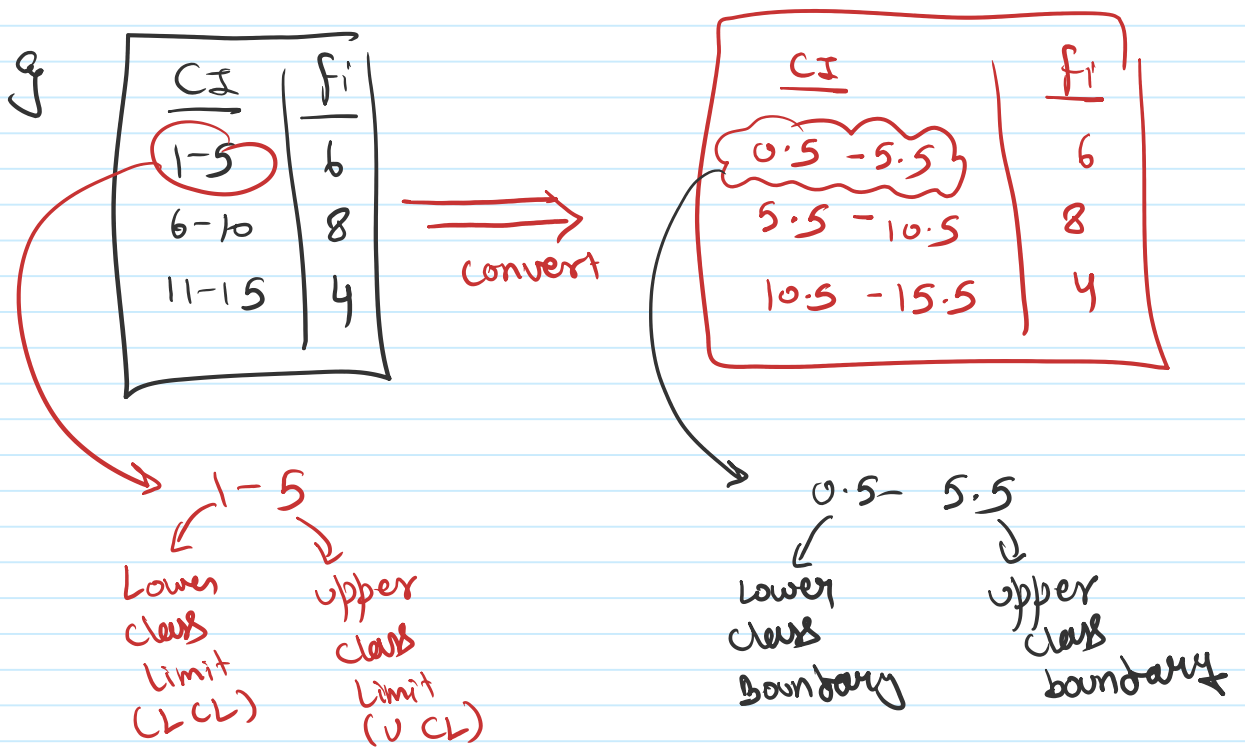 eg
CI fi
1-5 6
6-10 8
11-15 4
convert
CI fi
0.5 - 5.5 6
5.5 - 10.5 8
10.5 - 15.5 4
1 - 5
Lower
class
Limit
(LCL)
upper
class
Limit
(UCL)
0.5 - 5.5
Lower
class
Boundary
upper
class
boundary